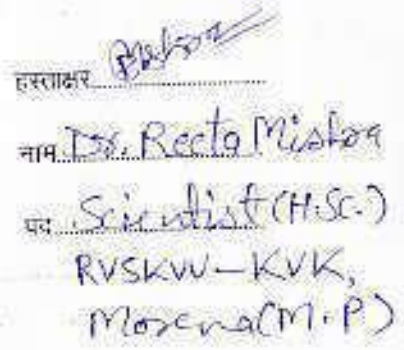 हस्ताक्षर
नाम Dr. Reeta Mishra
पद Scientist (H.Sc.)
RVSKVV-KVK,
Morena (M.P)